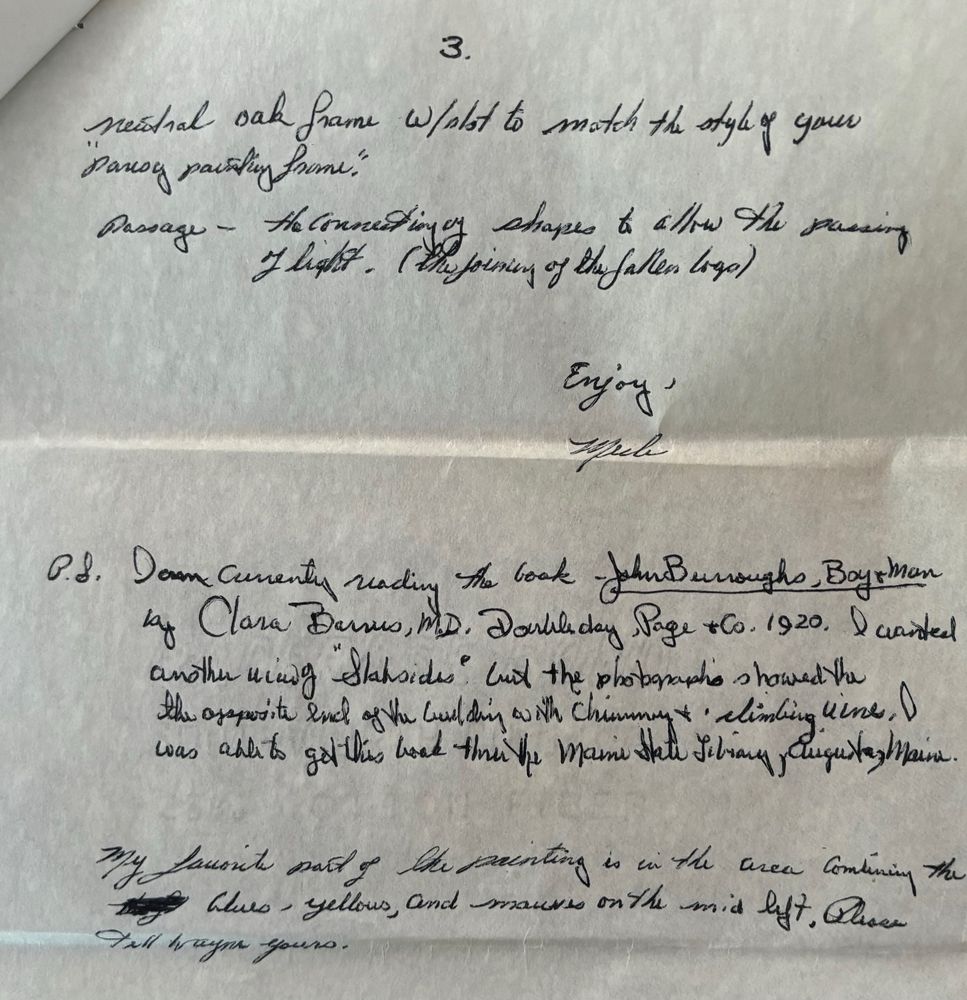 3.
neutral oak frame w/slot to match the style of your
"Pansy painting frame."
Passage - the connecting of shapes to allow the passing
of light. (the joining of the fallen logs)
Enjoy,
P.S. I am currently reading the book - John Burroughs, Boy & Man
by Clara Barrus, M.D. Doubleday, Page & Co. 1920. I wanted
another view of "Slabsides" but the photographs showed the
the opposite end of the building with chimney & climbing vines. I
was able to get this book thru the Maine State Library, Augusta, Maine.
My favorite part of the painting is in the area combining the
blues - yellows, and mauves on the mid left. Please
Tell Wayne yours.